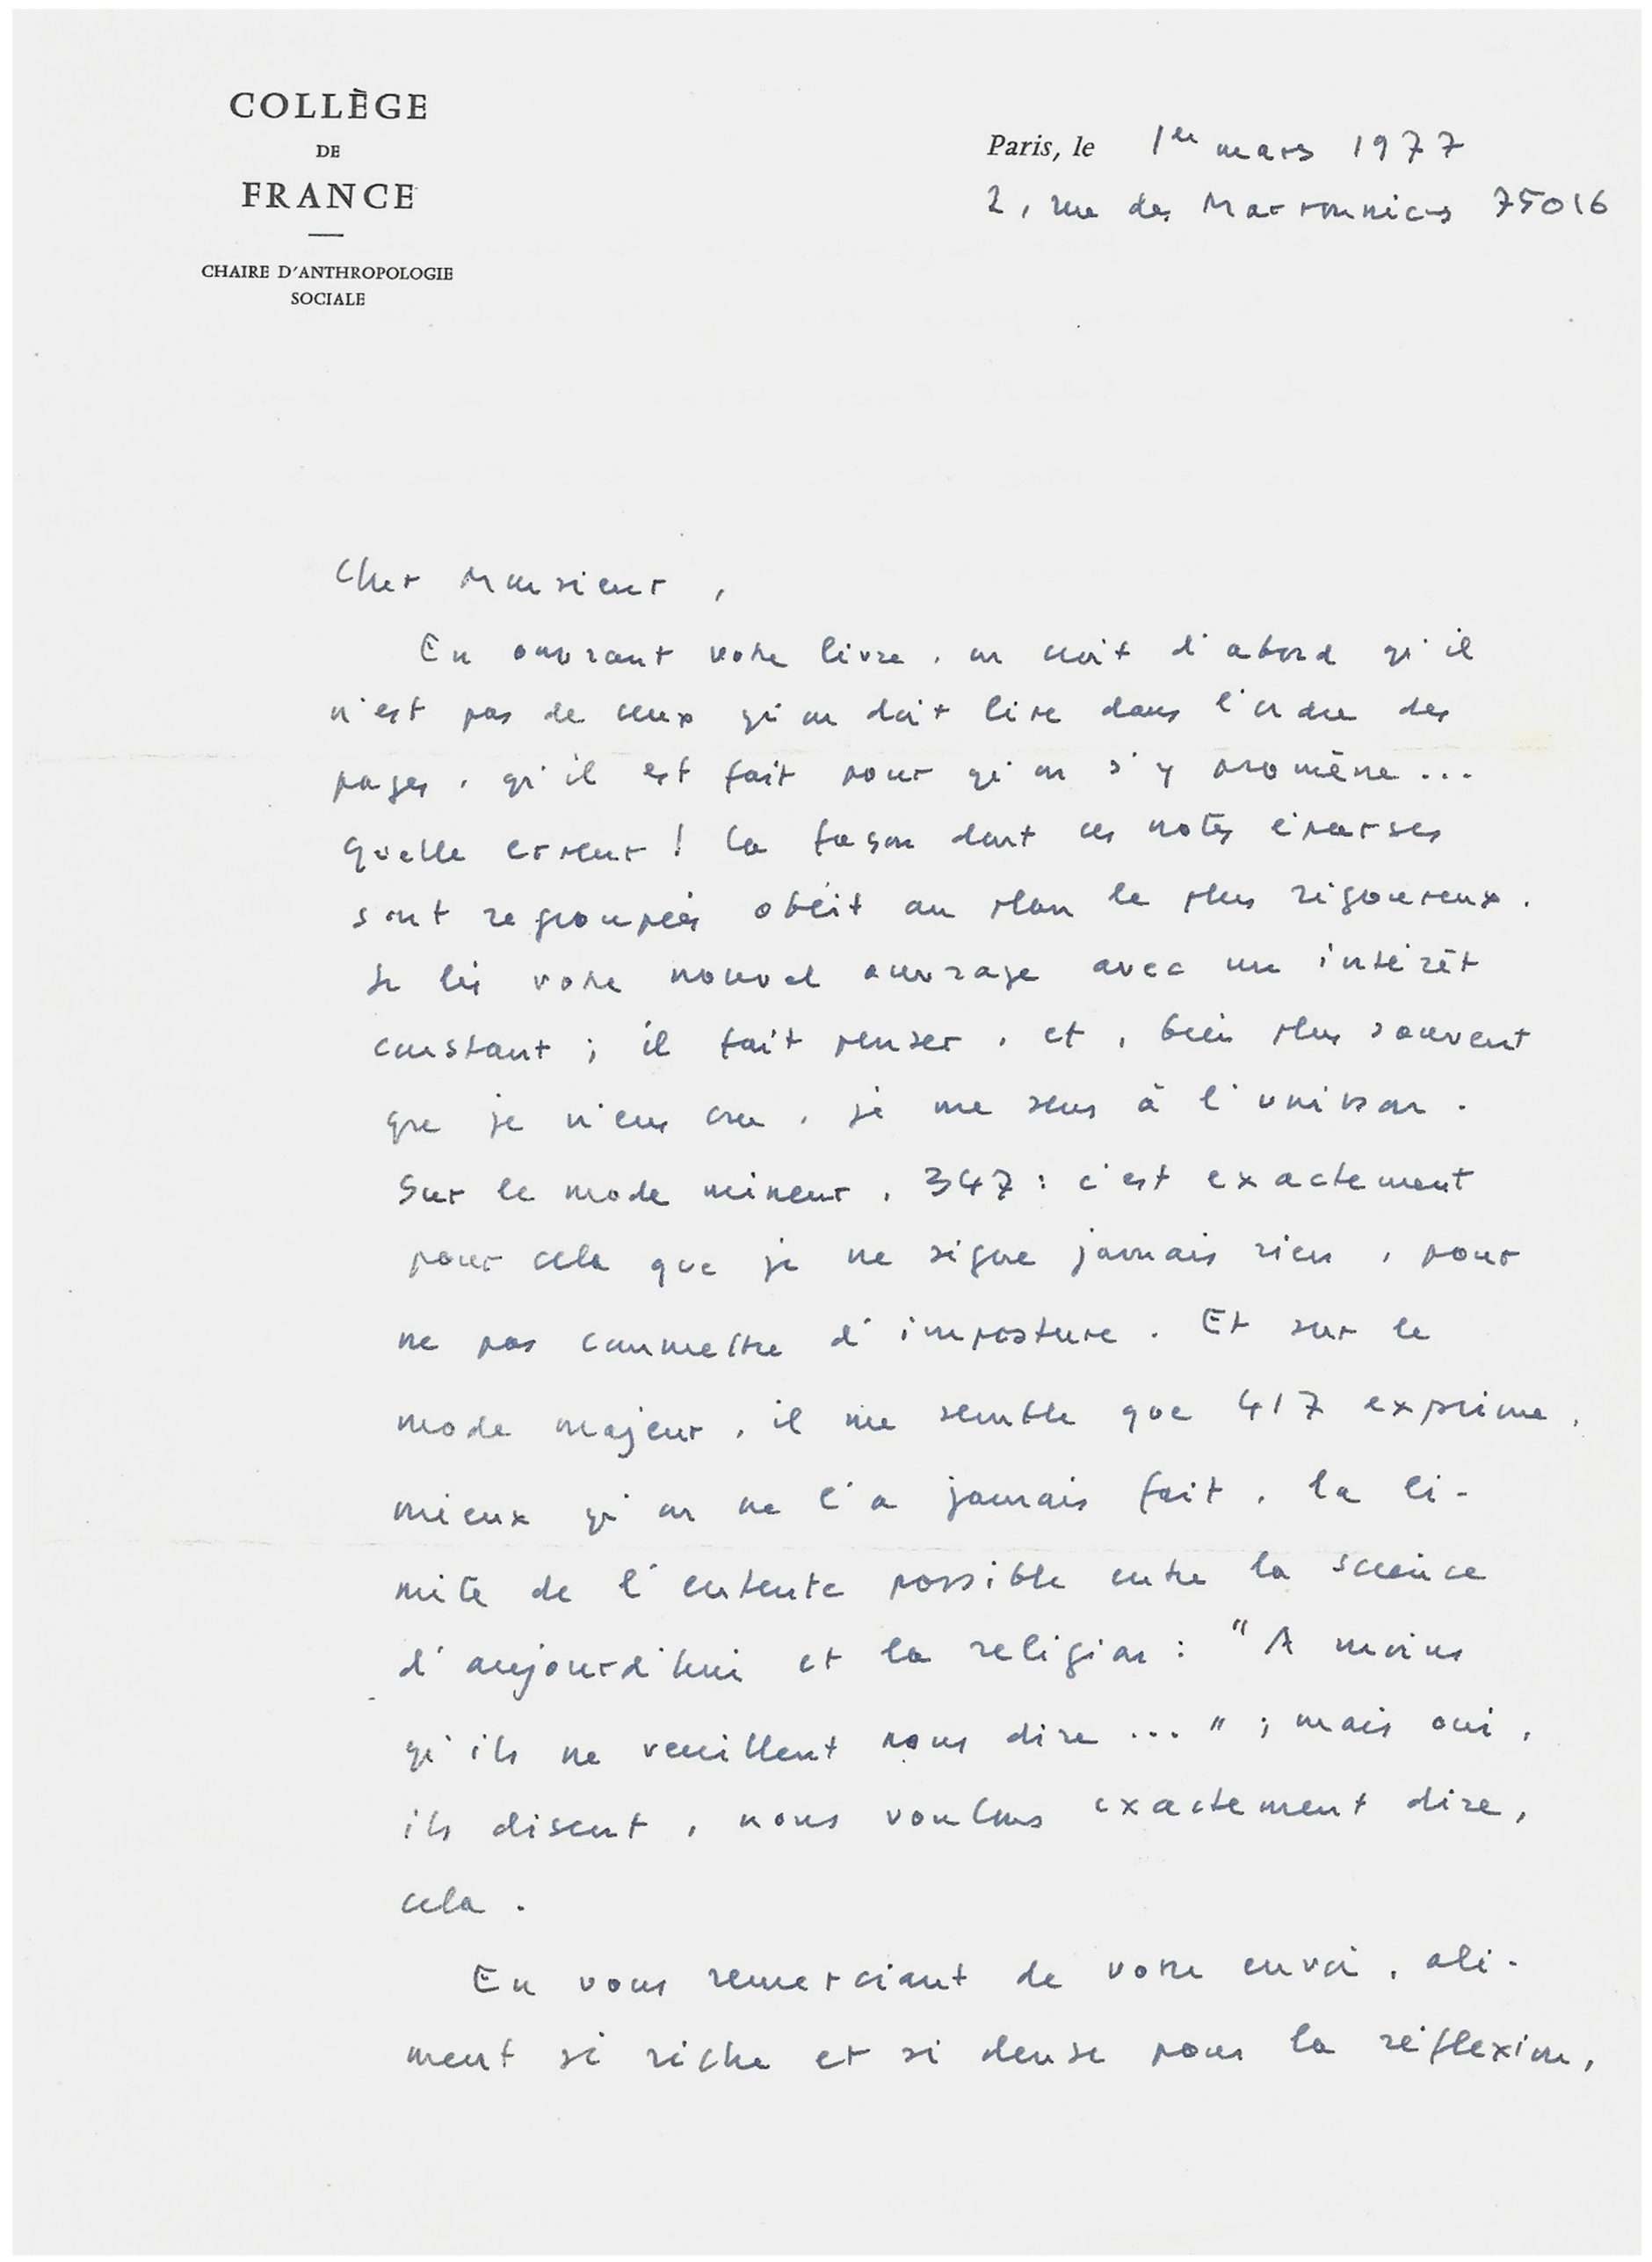 COLLÈGE
DE
FRANCE
CHAIRE D'ANTHROPOLOGIE
SOCIALE
Paris, le 1er mars 1977
2, rue des Marronniers 75016
Cher Monsieur,
En ouvrant votre livre, on croit d'abord qu'il
n'est pas de ceux qu'on doit lire dans l'ordre des
pages, qu'il est fait pour qu'on s'y promène...
Quelle erreur ! La façon dont ces notes éparses
sont regroupées obéit au plan le plus rigoureux.
Je lis votre nouvel ouvrage avec un intérêt
constant ; il fait penser, et, bien plus souvent
que je n'eus cru, je me sens à l'unisson.
Sur le mode mineur, 347 : c'est exactement
pour cela que je ne signe jamais rien, pour
ne pas commettre d'imposture. Et sur le
mode majeur, il me semble que 417 exprime,
mieux qu'on ne l'a jamais fait, la li-
mite de l'entente possible entre la science
d'aujourd'hui et la religion : "A moins
qu'ils ne veuillent nous dire..." ; mais oui,
ils disent, nous voulons exactement dire,
cela.
En vous remerciant de votre envoi, ali-
ment si riche et si dense pour la réflexion,